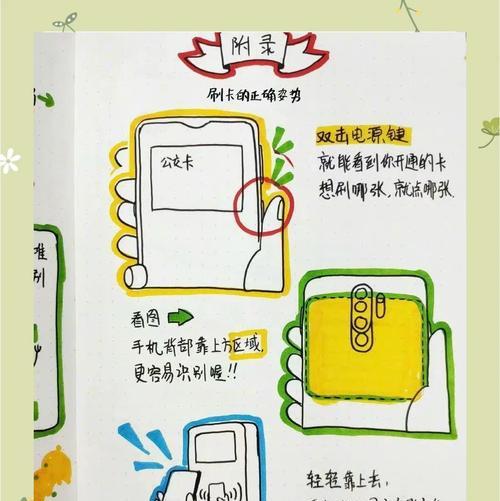 附录
刷卡的正确姿势
双击电源键
就能看到你开通的卡
想刷哪张,就点哪张.
公交卡
看图
手机背部靠上方区域,
更容易识别喔!!
轻轻靠上去,